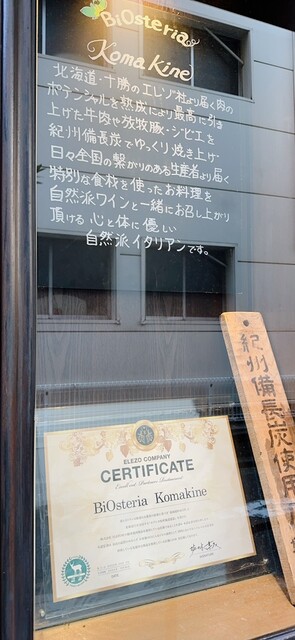 BiOsteria
Komakine
北海道・十勝のエレゾ社より届く肉の
ポテンシャルを熟成により最高に引き
上げた牛肉や放牧豚・ジビエを
紀州備長炭でゆっくり焼き上げ
日々全国の繋がりのある生産者より届く
特別な食材を使ったお料理を
自然派ワインと一緒にお召し上がり
頂ける 心と体に優しい
自然派イタリアンです。
紀州備長炭使用
ELEZO COMPANY
CERTIFICATE
BiOsteria Komakine